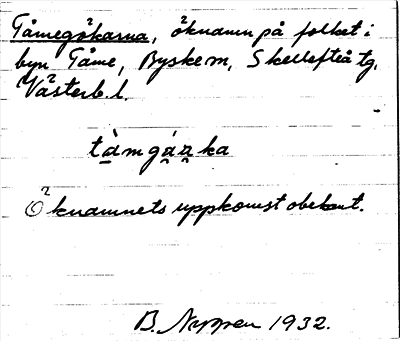 Tåmegökarna, öknamn på folket i
byn Tåme, Byske sn, Skellefteå tg,
Västerb. l.
tàmgáʒka
Öknamnets uppkomst obekant.
B. Nyppen 1932.